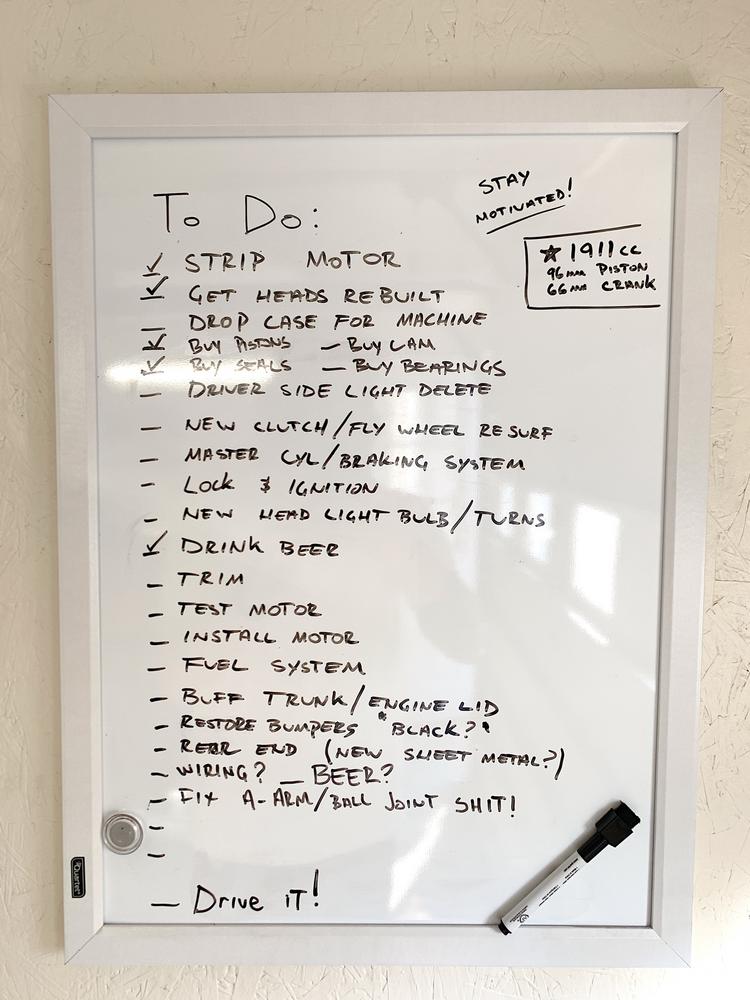 To Do:
STAY
MOTIVATED!
★ 1911cc
96mm PISTON
66mm CRANK
✓ STRIP MOTOR
✓ GET HEADS REBUILT
_ DROP CASE FOR MACHINE
✓ BUY PISTONS _ BUY CAM
✓ BUY SEALS _ BUY BEARINGS
_ DRIVER SIDE LIGHT DELETE
_ NEW CLUTCH/FLY WHEEL RESURF
_ MASTER CYL/BRAKING SYSTEM
_ Lock & IGNITION
_ NEW HEAD LIGHT BULB/TURNS
✓ DRINK BEER
_ TRIM
_ TEST MOTOR
_ INSTALL MOTOR
_ FUEL SYSTEM
_ BUFF TRUNK/ENGINE LID
_ RESTORE BUMPERS *BLACK?*
_ REAR END (NEW SHEET METAL?)
_ WIRING? _ BEER?
_ FIX A-ARM/BALL JOINT SHIT!
_
_
_ Drive IT!
Quartet